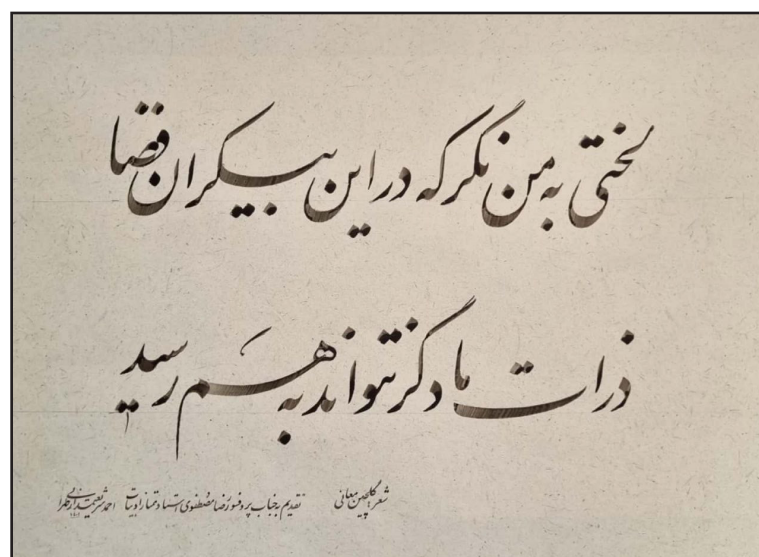 لختی به من نگر که در این بیکران فضا
ذرات ما دگر نتواند به هم رسید
شعر: گلچین معانی
تقدیم به جناب پروفسور رضا مصطفوی استاد ممتاز ادبیات احمد